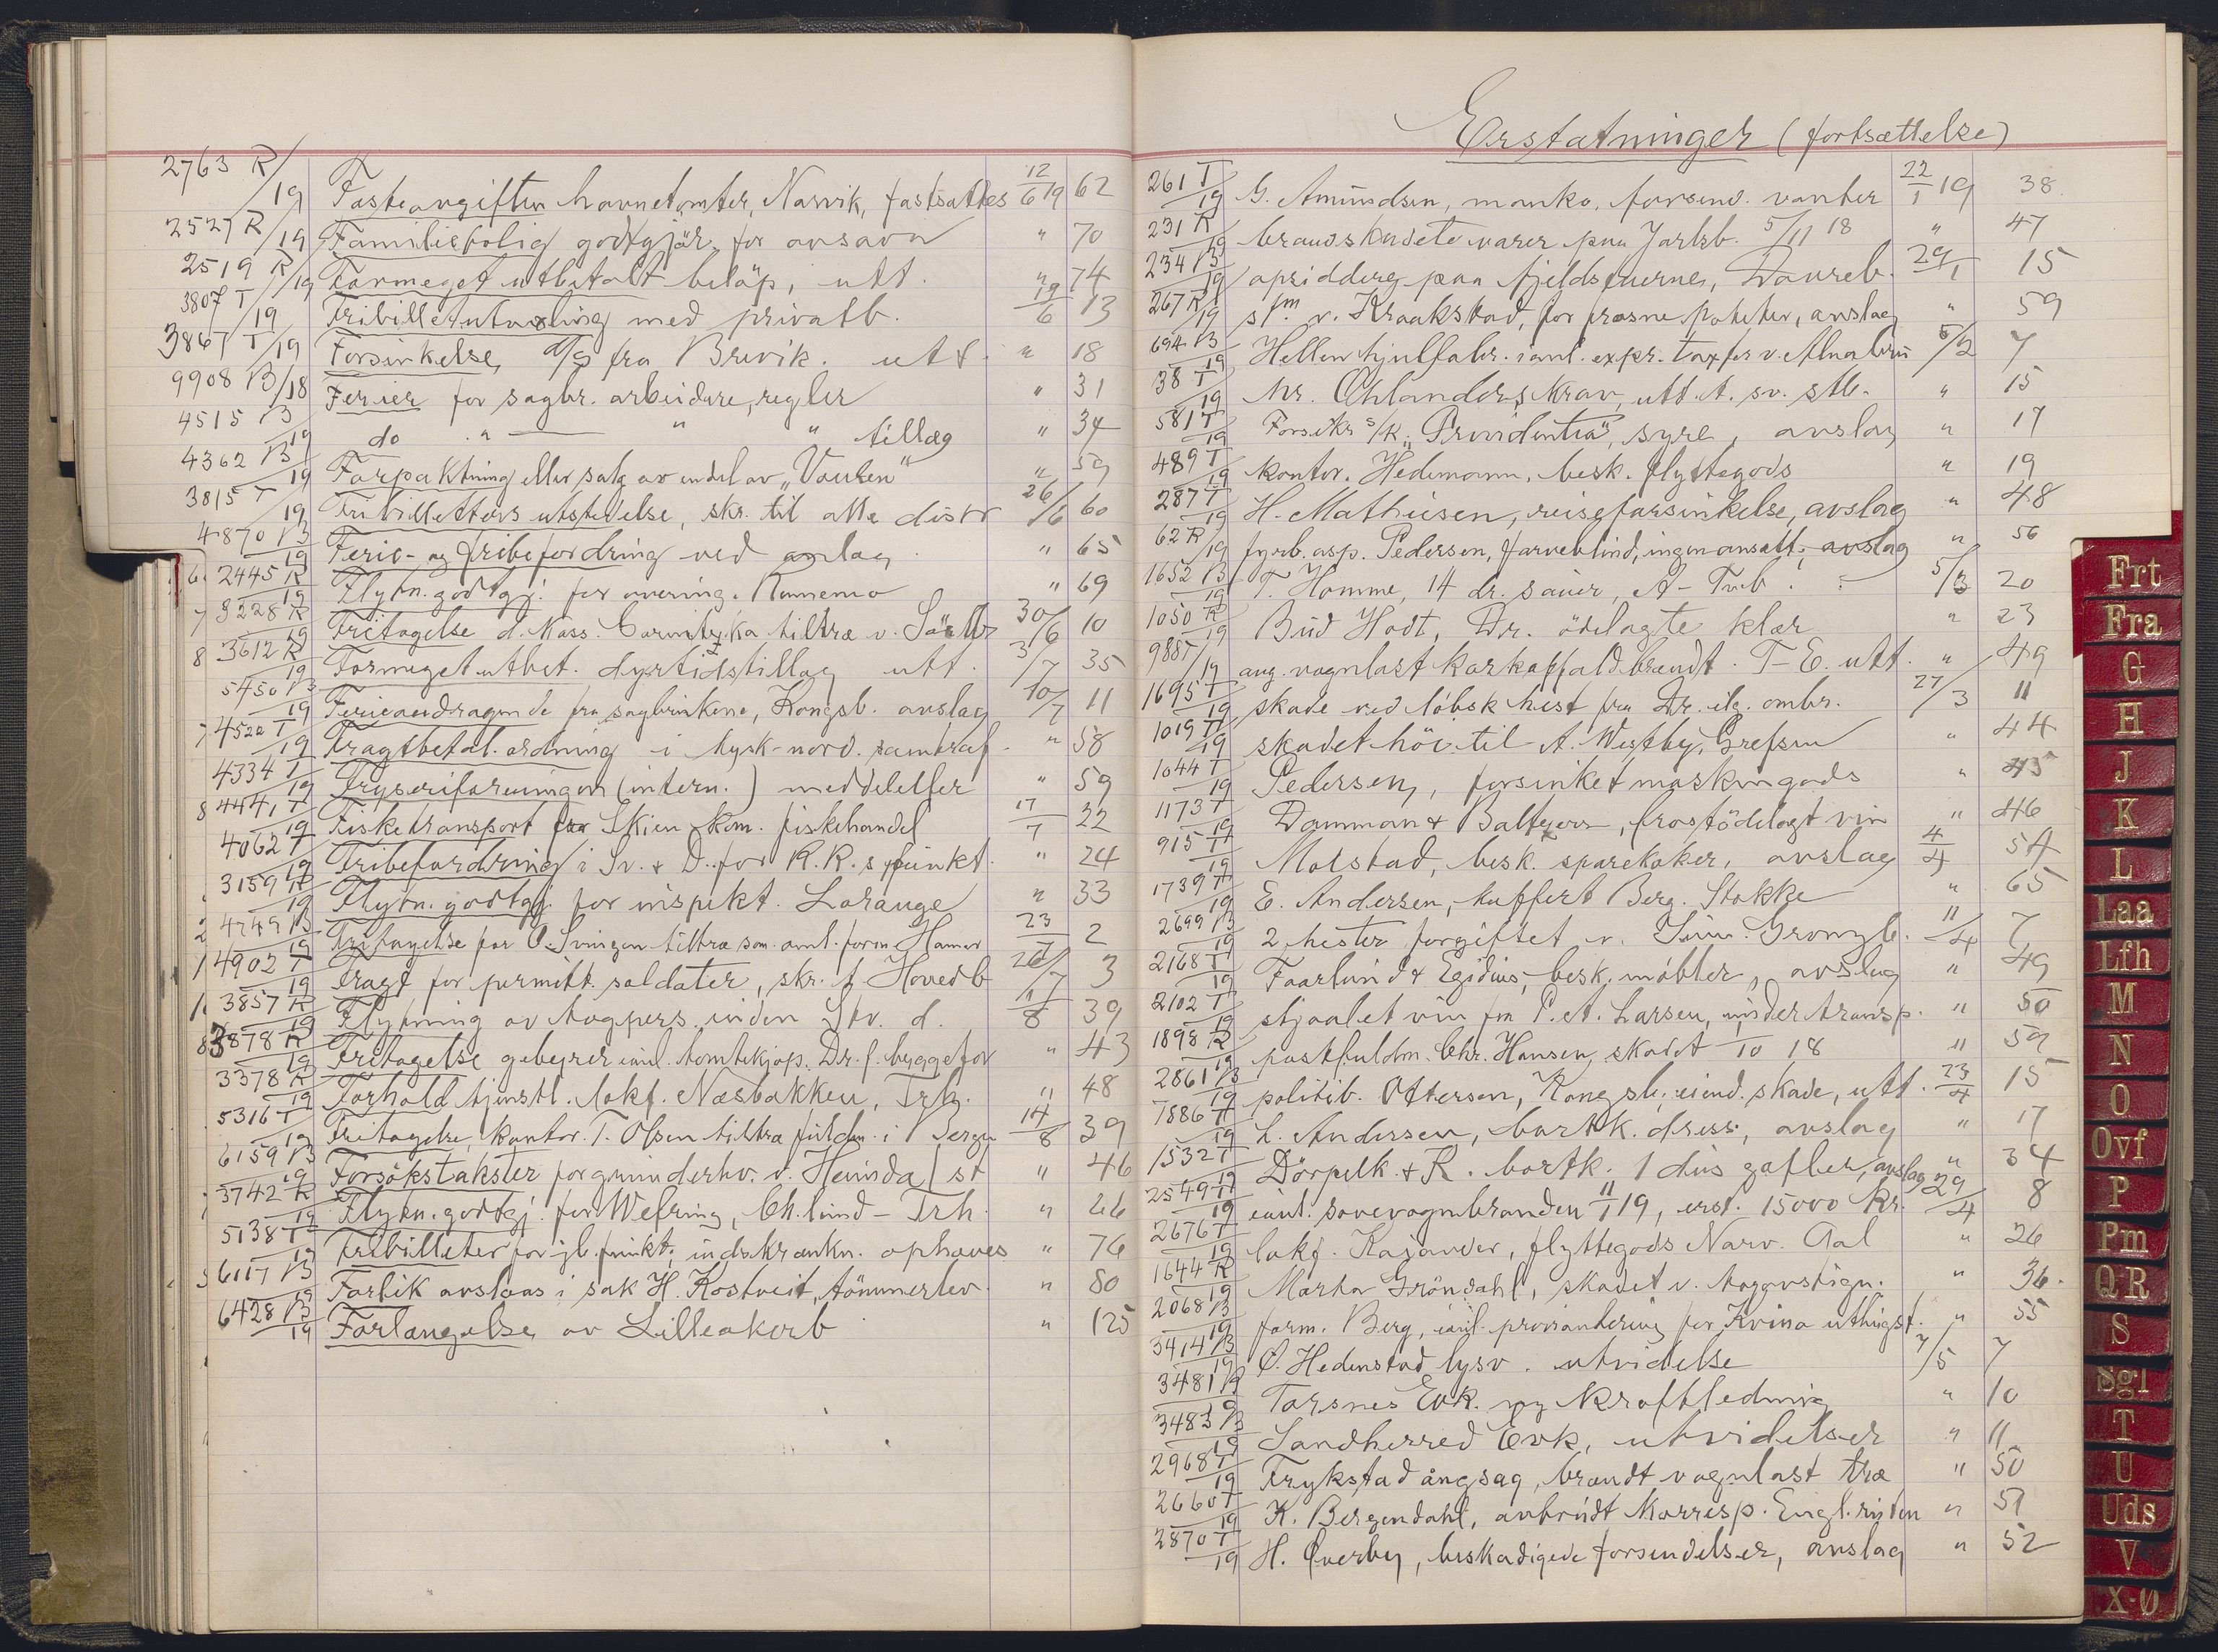 2763 R/19 Festeavgiften havnetomter, Narvik, fastsattes 12/6 19 62
2527 R/19 Familiebolig godtgjör. for " 70
2519 R/19 Formeget utbetalt beløp, utt. " 74
3807 T/19 med privatb. 19/6 13
3867 T/19 Forsinkelse, fra Brevik. utt. " 18
9908 B/18 Ferier for sagbr. arbeidere, regler " 31
4515 B/19 do " " " tillæg " 34
4362 B/19 Forpaktning eller salg av endel av " 59
3815 T/19 Fribilletters utstedelse, skr. til alle distr 26/6 60
4870 B/19 Ferie- og fribefordring ved anlæg " 65
2445 R/19 Flytn. godtgj. for " 69
3228 R/19 Fritagelse d. Kass. tiltræ v. 30/6 10
3612 R/19 Formeget utbet. dyrtidstillæg utt. 3/7 35
5450 B/19 Ferieandragende fra sagbrukene, Kongsb. avslag 10/7 11
4522 T/19 Fragtbetal. ordning i tysk-nord. samtraf. " 58
4334 T/19 Fryseriforeningen (intern.) meddelelser " 59
4441 T/19 Fisketransport fra Skien kom. fiskehandel 17/7 22
4062 T/19 Fribefordring i Sv. & D. for R.R.s funkt. " 24
3159 R/19 Flytn. godtgj. for inspekt. Lorange " 33
4749 B/19 Fritagelse for O. Svingen tiltræ som anl. form. Hamar 23/7 2
4902 T/19 Fragt for permitt. soldater, skr. f. Hovedb 26/7 3
3857 R/19 Flytning av togpers. inden Stv. d. 1/8 39
3878 R/19 Fritagelse gebyrer anl. tomtekjøp. Dr. f. byggefor " 43
3378 R/19 Forhold tjenstl. lokf. Næsbakken, Trh. " 48
5316 T/19 Fritagelse, kontor. T. Olsen tiltræ fuldm. i Bergen 14/8 39
6159 B/19 Forsøkstakster for grunderhv. v. Heimdal st " 46
3742 R/19 Flytn. godtgj. for Wefring, Ch.lund - Trh. " 66
5138 T/19 Fribilletter for jb. funkt. indskrænkn. ophæves " 76
6117 B/19 Forlik avslaaes i sak H. Kostveit, tömmerlev. " 80
6428 B/19 Forlængelse av Lilleakerb " 125
Erstatninger (fortsættelse)
261 T/19 G. Amundsen, manko, forsend. vanter 22/1 19 38
231 R/19 brandskadete varer paa Jarlsb. 5/11 18 " 47
234 B/19 opsiddere paa fjeldstuerne, Dovreb. 29/1 15
267 R/19 sfm v. Kraakstad, for frosne poteter, avslag " 59
694 B/19 Hellen hjulfabr. anl. expr. taxter v. Alnabru 5/2 7
38 T/19 Hr. Öhlanders krav, utt. t. sv. stb. " 15
581 T/19 Forsikr s/k. "Prividentia", syre, avslag " 17
489 T/19 kontor. Hedemann, besk. flyttegods " 19
287 T/19 H. Mathiesen, reiseforsinkelse, avslag " 48
62 R/19 fyrb. asp. Pedersen, farveblind, ingen ansatt. avslag " 56
1652 B/19 T. Homme, 14 dr. sauer, A-Tveb. 5/3 20
1050 R/19 Bud Hodt, Dr. ödelagte klær " 23
988 T/19 ang. vagnlast korkaffald brændt. T-E. utt. " 49
1695 T/19 skade ved löbsk hest fra Dr. ilg. ombr. 27/3 11
1019 T/19 skadet höi til A. Westby, Grefsen " 44
1044 T/19 Pedersen, forsinket maskingods " 45
1173 T/19 Damman & frostödelagt vin " 46
915 T/19 Molstad, besk. sparekoker, avslag 4/4 54
1739 T/19 E. Andersen, kuffert Berg. Stokke " 65
2699 B/19 2 hester forgiftet v. Grongb. 11/4 7
2168 T/19 Faarlund & Egidius, besk. möbler, avslag " 49
2102 T/19 stjaalet vin fra P. A. Larsen, under transp. " 50
1898 R/19 postfuldm. Chr. Hansen, skadet 10 18 " 59
2861 B/19 politib. Ottersen, Kongsb. eiend. skade, utt. 23/4 15
1886 T/19 L. Andersen, bortk. dress, avslag " 17
1532 T/19 Dörpelk & K. bortk. 1 dus gafler, avslag " 34
2549 T/19 anl. sovevognbranden 11/1 19, erst. 15000 Kr. 29/4 8
2676 T/19 lokf. Kajander, flyttegods Narv. Aal " 26
1644 R/19 Marta Gröndahl, skadet v. togavstign. " 36.
2068 B/19 form. Berg, anl. proviantering for Kvina uthugst. " 55
3414 B/19 O. Hedenstad lysv. utvidelse 7/5 7
3481 B/19 Torsnes Evk. ny kraftledning " 10
3483 B/19 Sandherred Evk, utvidelser " 11
2968 T/19 Frykstad ångsag, brændt vognlast træ " 50
2660 T/19 K. Bergendahl, avbrudt korresp. Engl. ruten " 51
2870 T/19 H. Överby, beskadigede forsendelser, avslag " 52
Frt
Fra
G
H
J
K
L
Laa
Lfh
M
N
O
Ovf
P
Pm
QR
S
Sgl
T
U
Uds
V
X-Ø